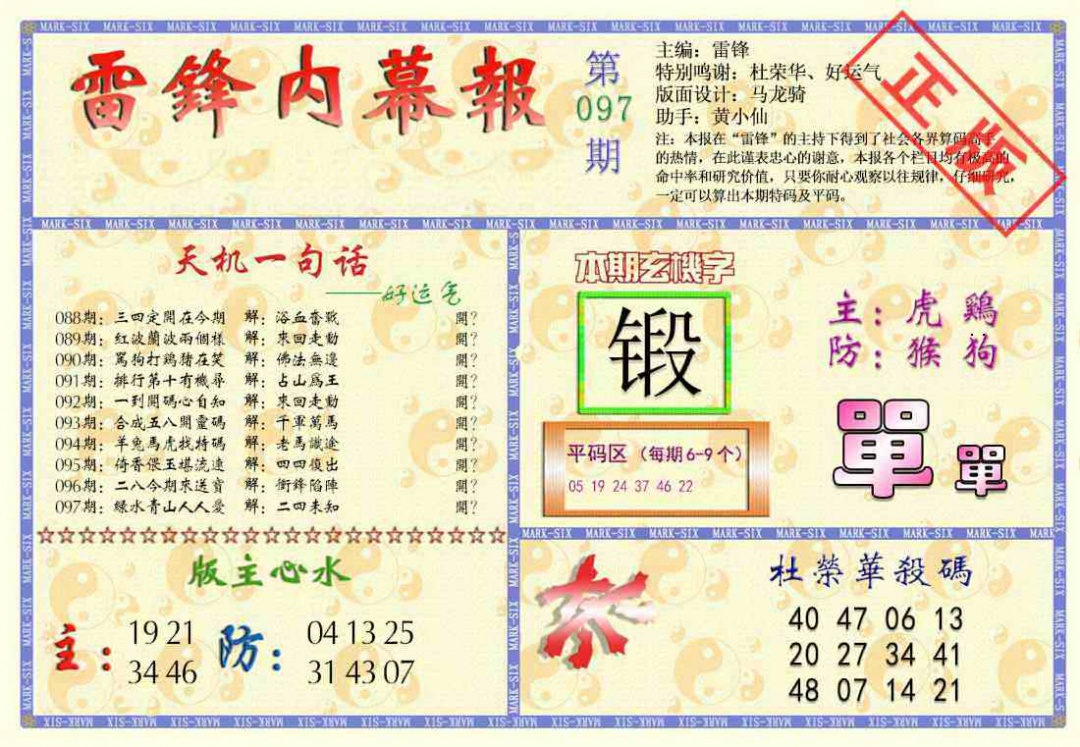 雷鋒内幕報
第
097
期
主编：雷锋
特别鸣谢：杜荣华、好运气
版面设计：马龙骑
助手：黄小仙
注：本报在“雷锋”的主持下得到了社会各界算码高手
的热情，在此谨表忠心的谢意，本报各个栏目均有极高的
命中率和研究价值，只要你耐心观察以往规律，仔细研究，
一定可以算出本期特码及平码。
正版
天机一句话
——好运气
088期：三四定開在今期 解：浴血奮戰 開？
089期：紅波蘭波兩個樣 解：來回走動 開？
090期：罵狗打鷄猪在笑 解：佛法無邊 開？
091期：排行第十有機尋 解：占山爲王 開？
092期：一到開碼心自知 解：來回走動 開？
093期：合成五八開靈碼 解：千軍萬馬 開？
094期：羊兔馬虎找特碼 解：老馬識途 開？
095期：倚香偎玉堪流連 解：四四復出 開？
096期：二八今期來送寳 解：衝鋒陷陣 開？
097期：緑水青山人人愛 解：二四未知 開？
本期玄機字
锻
主：虎 鷄
防：猴 狗
平码区（每期6-9个）
05 19 24 37 46 22
單 單
版主心水
主：
19 21
34 46
防：
04 13 25
31 43 07
杜榮華殺碼
40 47 06 13
20 27 34 41
48 07 14 21
MARK-SIX